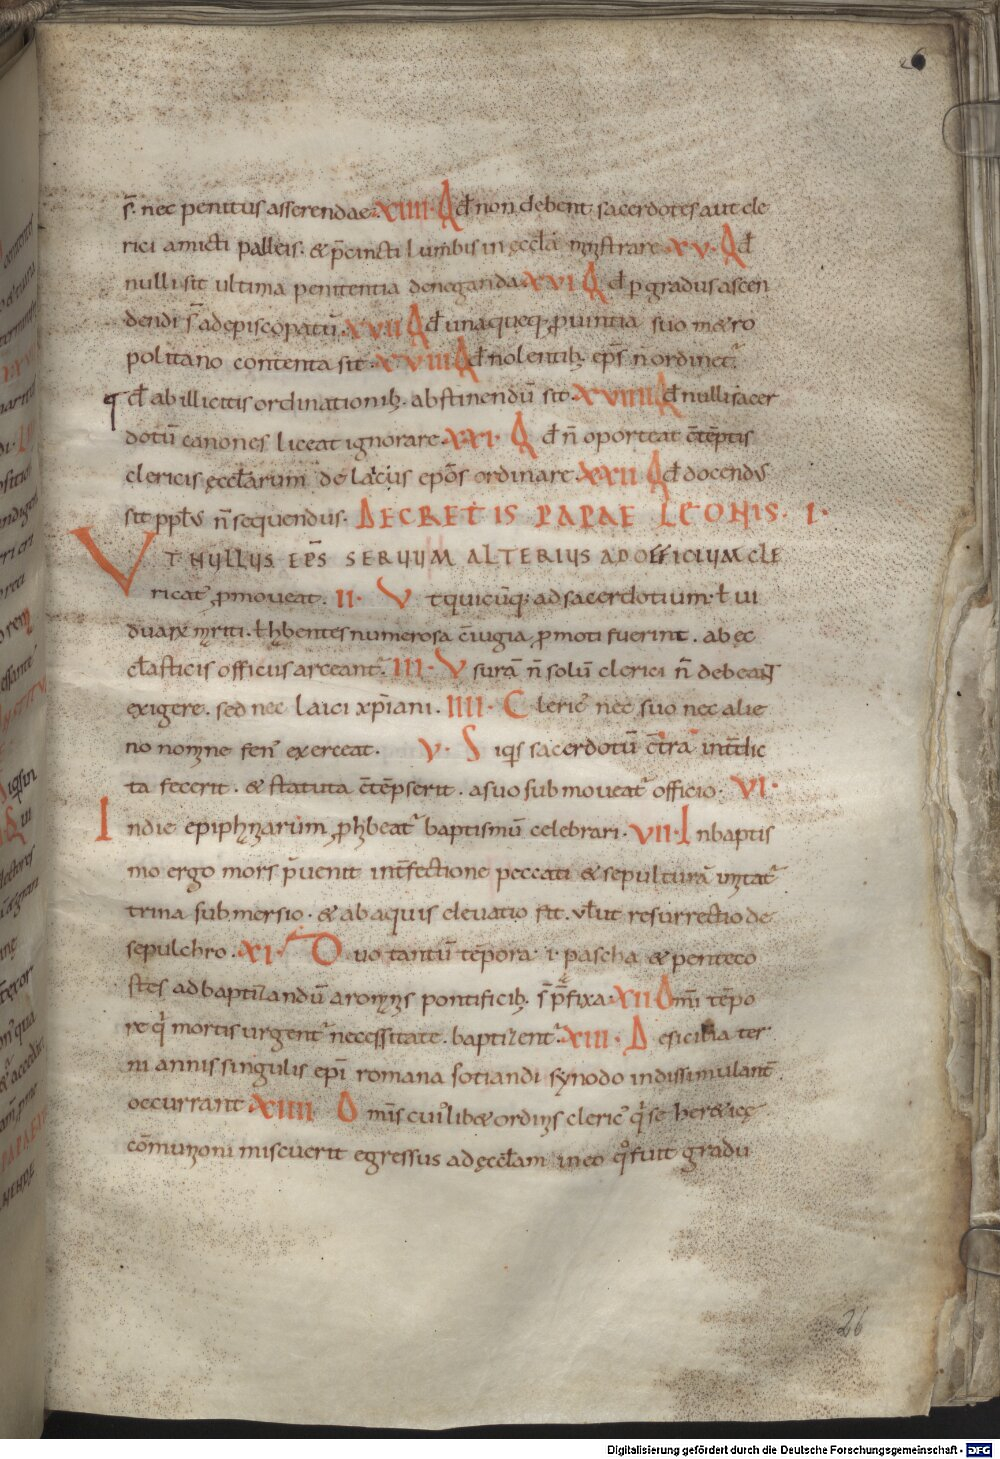 6
s̄. nec penitus asserendae. XIIII. Qđ non debent sacerdotes aut cle
rici amicti palleis. & p̄cincti lumbis in ęccła mīnstrare. XV. Qđ
nulli sit ultima penitentia deneganda. XVI Qđ p gradus ascen
dendi s̄ ad episcopatū. XVII Qđ unaqueq; puintia suo m&ro
politano contenta sit. XVIII Qđ nolentib; ep̄s n̄ ordinet᷑
qđ ab illicitis ordinationib; abstinendū sit. XVIIII Qđ nulli sacer
dotū canones liceat ignorare. XXI. Qđ n̄ oporteat c̄tēptis
clericis ęccłarum de laicis ep̄os ordinare. XXII Qđ docend᷒
sit ppłs n̄ sequendus. DECRETIS PAPAE LEONIS. I.
UT NULLUS EP̄S SERUUM ALTERIUS AD OFFICIUM CLE
ricat᷒ pmoueat. II. Ut quicūq; ad sacerdotium. ł ui
duarꝝ mriti. ł hbentes numerosa c̄iugia pmoti fuerint. ab ęc
cłasticis officiis arceant᷑. III. Usurā n̄ solū clerici n̄ debeant
exigere. sed nec laici xp̄iani. IIII. Cleric᷒ nec suo nec alie
no nomine fen᷒ exerceat. V. Siqis sacerdotū c̄tra int̄dic
ta fecerit. & statuta c̄tēpserit. a suo submoueat᷑ officio. VI.
In die epiphaniarum phbeat᷑ baptismū celebrari. VII. In baptis
mo ergo mors p̄uenit int̄fectione peccati & sepulturā imitat᷑
trina submersio. & ab aquis elevatio fit. ułut resurrectio de
sepulchro. XI. Duo tantū tēpora. i. pascha & penteco
stes ad baptizandū a romanis pontificib; s̄ p̄fixa. XII Omi tēpo
re qi mortis urgent᷑ necessitate. baptizent᷑. XIII. De sicilia ter
ni annis singulis epī romana sotiandi synodo indissimulant̄
occurrant XIIII Omīs cui᷒libet ordinis cleric᷒ qi se heretice
cōmunioni miscuerit egressus ad ęccłam in eo qo fuit gradu
26
Digitalisierung gefördert durch die Deutsche Forschungsgemeinschaft - DFG